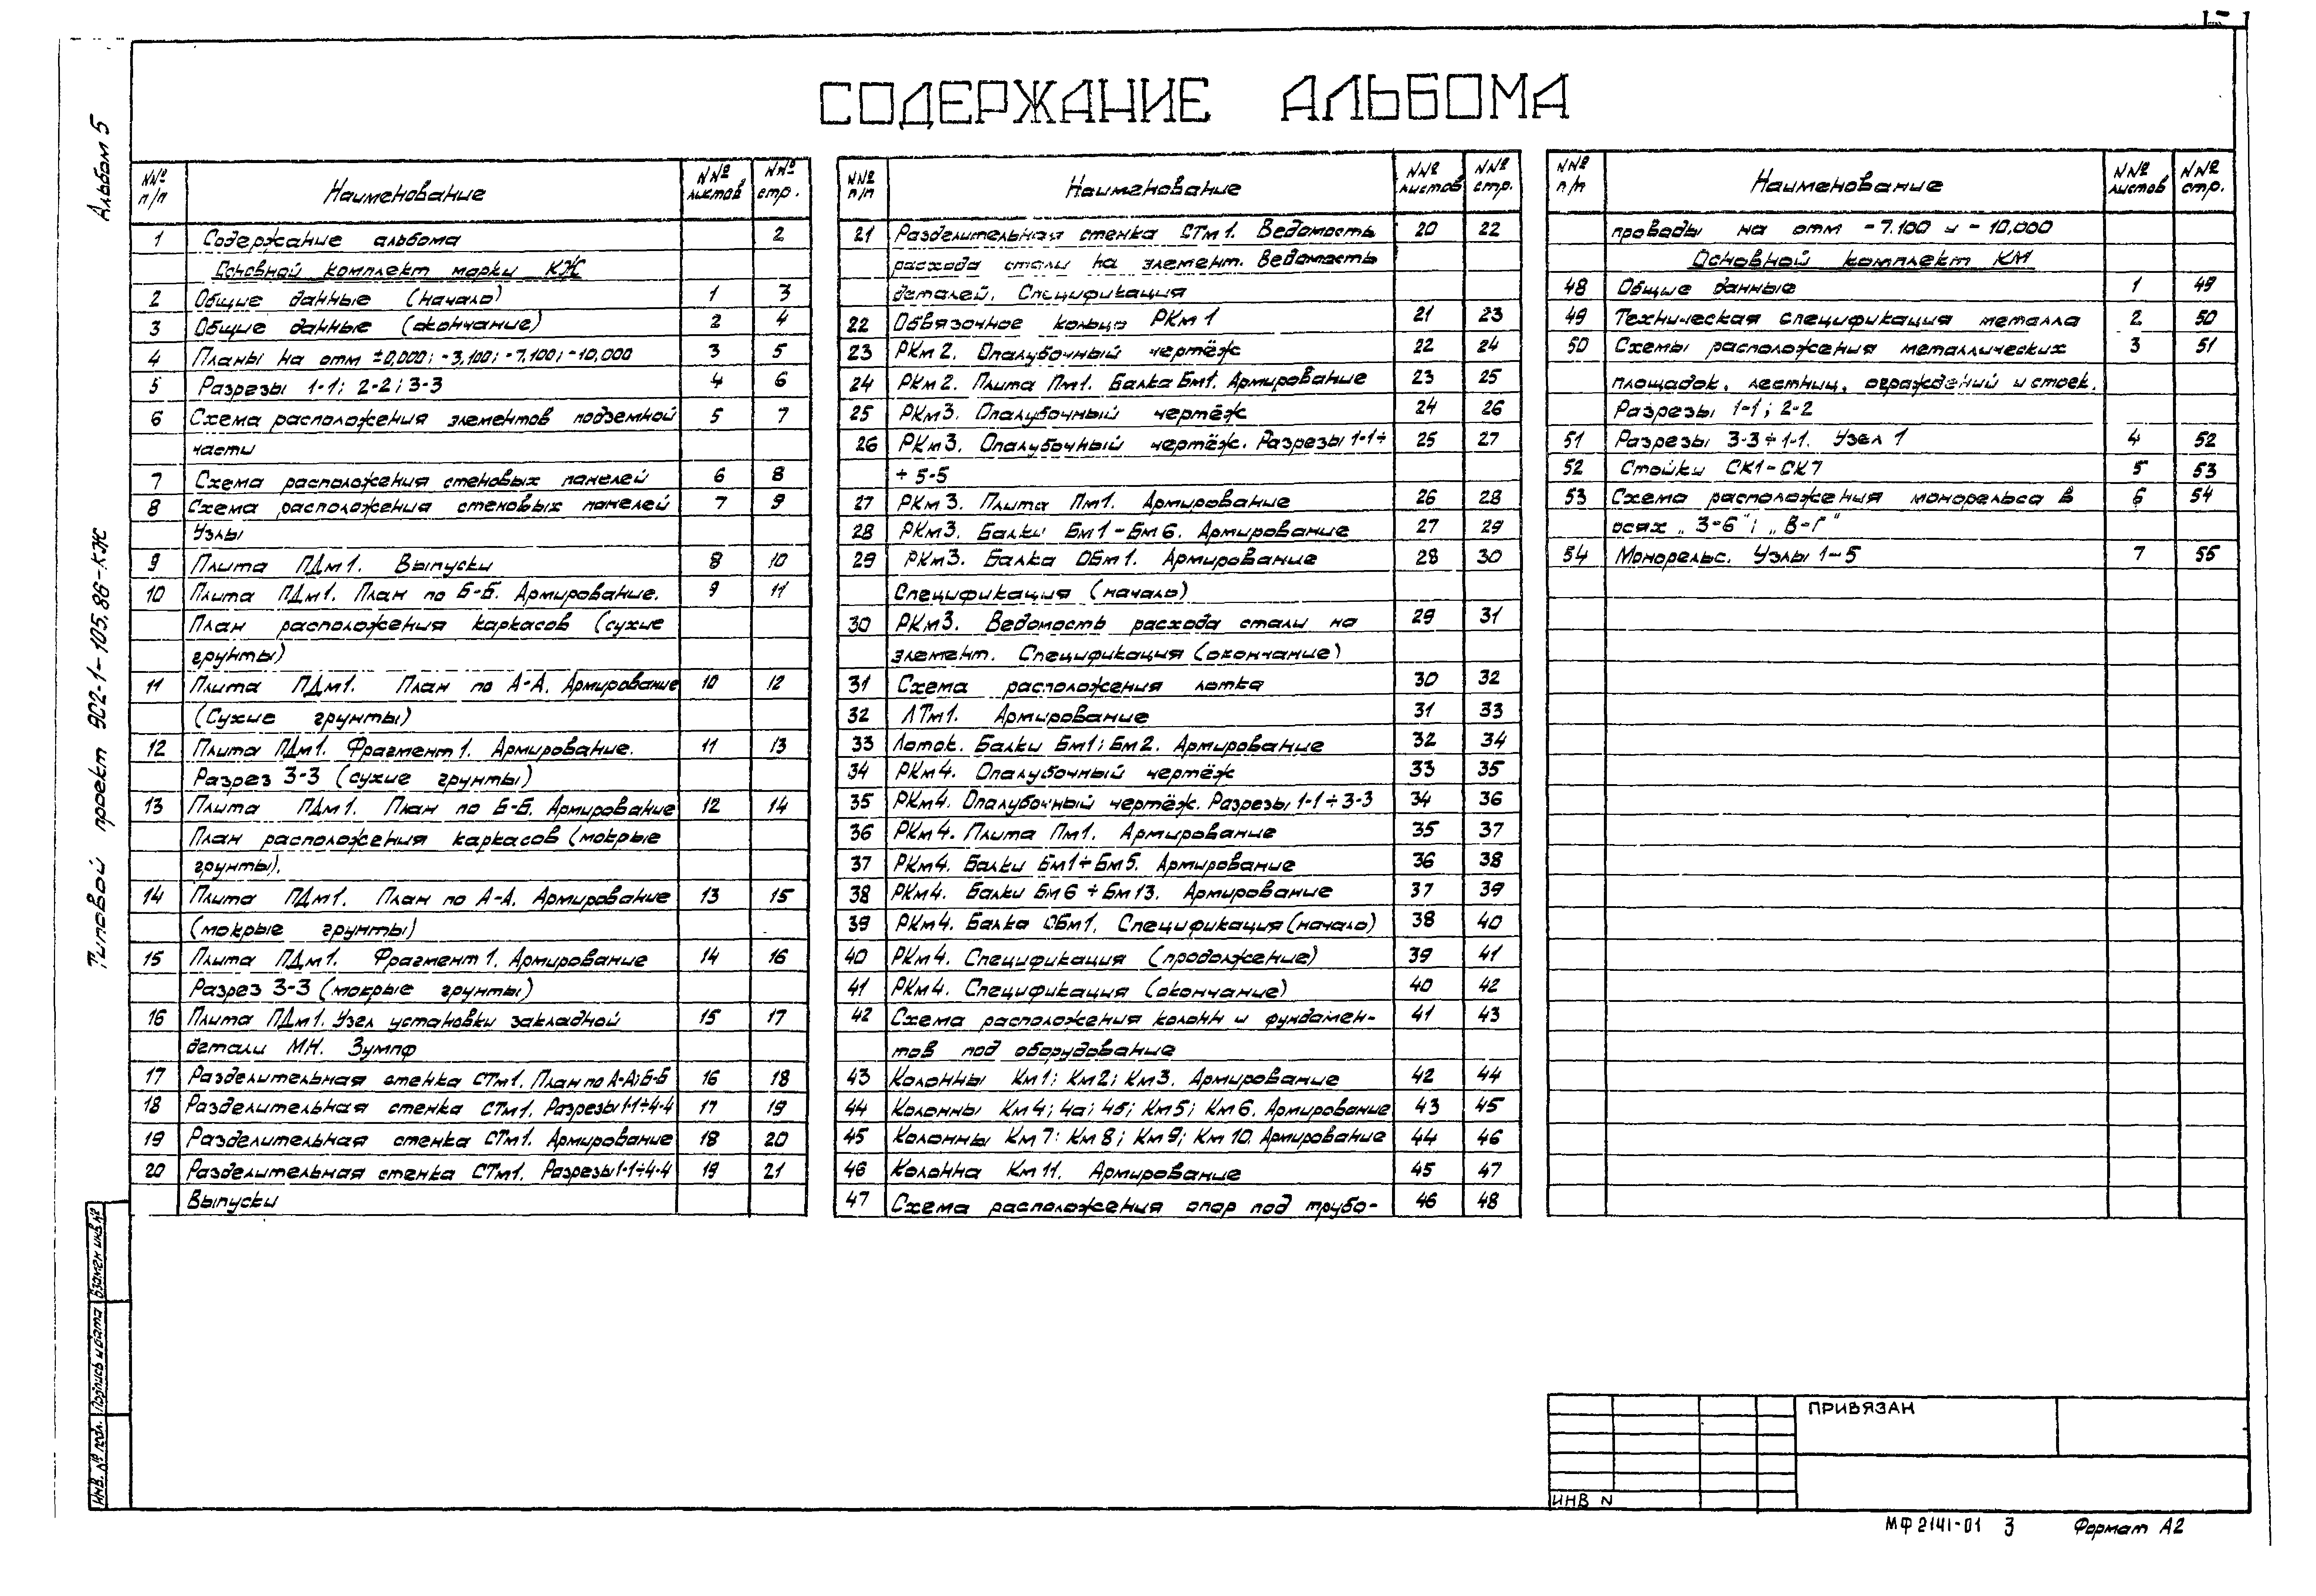 СОДЕРЖАНИЕ АЛЬБОМА
Альбом 5
Типовой проект 902-1-105.86-КЖ
NN° п/п Наименование NN° листов NN° стр.
1 Содержание альбома 2
Основной комплект марки КЖ
2 Общие данные (начало) 1 3
3 Общие данные (окончание) 2 4
4 Планы на отм ±0,000; -3,100; -7,100; -10,000 3 5
5 Разрезы 1-1; 2-2; 3-3 4 6
6 Схема расположения элементов подземной 5 7
части
7 Схема расположения стеновых панелей 6 8
8 Схема расположения стеновых панелей 7 9
Узлы
9 Плита ПДм1. Выпуски 8 10
10 Плита ПДм1. План по Б-Б. Армирование. 9 11
План расположения каркасов (сухие
грунты)
11 Плита ПДм1. План по А-А. Армирование 10 12
(Сухие грунты)
12 Плита ПДм1. Фрагмент 1. Армирование. 11 13
Разрез 3-3 (сухие грунты)
13 Плита ПДм1. План по Б-Б. Армирование 12 14
План расположения каркасов (мокрые
грунты).
14 Плита ПДм1. План по А-А. Армирование 13 15
(мокрые грунты)
15 Плита ПДм1. Фрагмент 1. Армирование 14 16
Разрез 3-3 (мокрые грунты)
16 Плита ПДм1. Узел установки закладной 15 17
детали МН. Зумпф
17 Разделительная стенка СТм1. План по А-А; Б-Б 16 18
18 Разделительная стенка СТм1. Разрезы 1-1÷4-4 17 19
19 Разделительная стенка СТм1. Армирование 18 20
20 Разделительная стенка СТм1. Разрезы 1-1÷4-4 19 21
Выпуски
NN° п/п Наименование NN° листов NN° стр.
21 Разделительная стенка СТм1. Ведомость 20 22
расхода стали на элемент. Ведомость
деталей. Спецификация
22 Обвязочное кольцо РКм1 21 23
23 РКм2. Опалубочный чертёж 22 24
24 РКм2. Плита Пм1. Балка Бм1. Армирование 23 25
25 РКм3. Опалубочный чертёж 24 26
26 РКм3. Опалубочный чертёж. Разрезы 1-1÷ 25 27
÷ 5-5
27 РКм3. Плита Пм1. Армирование 26 28
28 РКм3. Балки Бм1-Бм6. Армирование 27 29
29 РКм3. Балка ОБм1. Армирование 28 30
Спецификация (начало)
30 РКм3. Ведомость расхода стали на 29 31
элемент. Спецификация (окончание)
31 Схема расположения лотка 30 32
32 ЛТм1. Армирование 31 33
33 Лоток. Балки Бм1; Бм2. Армирование 32 34
34 РКм4. Опалубочный чертёж 33 35
35 РКм4. Опалубочный чертёж. Разрезы 1-1÷3-3 34 36
36 РКм4. Плита Пм1. Армирование 35 37
37 РКм4. Балки Бм1÷Бм5. Армирование 36 38
38 РКм4. Балки Бм6÷Бм13. Армирование 37 39
39 РКм4. Балка ОБм1. Спецификация (начало) 38 40
40 РКм4. Спецификация (продолжение) 39 41
41 РКм4. Спецификация (окончание) 40 42
42 Схема расположения колонн и фундамен- 41 43
тов под оборудование
43 Колонны Км1; Км2; Км3. Армирование 42 44
44 Колонны Км4; 4а; 4б; Км5; Км6. Армирование 43 45
45 Колонны Км7; Км8; Км9; Км10. Армирование 44 46
46 Колонна Км11. Армирование 45 47
47 Схема расположения опор под трубо- 46 48
NN° п/п Наименование NN° листов NN° стр.
проводы на отм -7.100 и -10,000
Основной комплект КМ
48 Общие данные 1 49
49 Техническая спецификация металла 2 50
50 Схемы расположения металлических 3 51
площадок, лестниц, ограждений и стоек.
Разрезы 1-1; 2-2
51 Разрезы 3-3÷1-1. Узел 1 4 52
52 Стойки СК1-СК7 5 53
53 Схема расположения монорельса в 6 54
осях „3-6"; „В-Г"
54 Монорельс. Узлы 1-5 7 55
ИНВ. № подл. Подпись и дата Взамен инв №
ПРИВЯЗАН
ИНВ N
МФ 2141-01 3 Формат А2